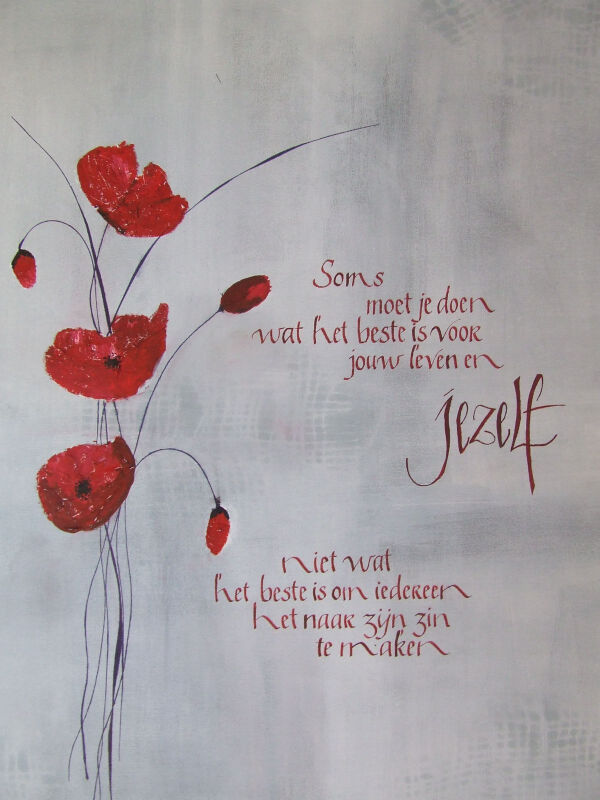 Soms
moet je doen
wat het beste is voor
jouw leven en
jezelf
niet wat
het beste is om iedereen
het naar zijn zin
te maken